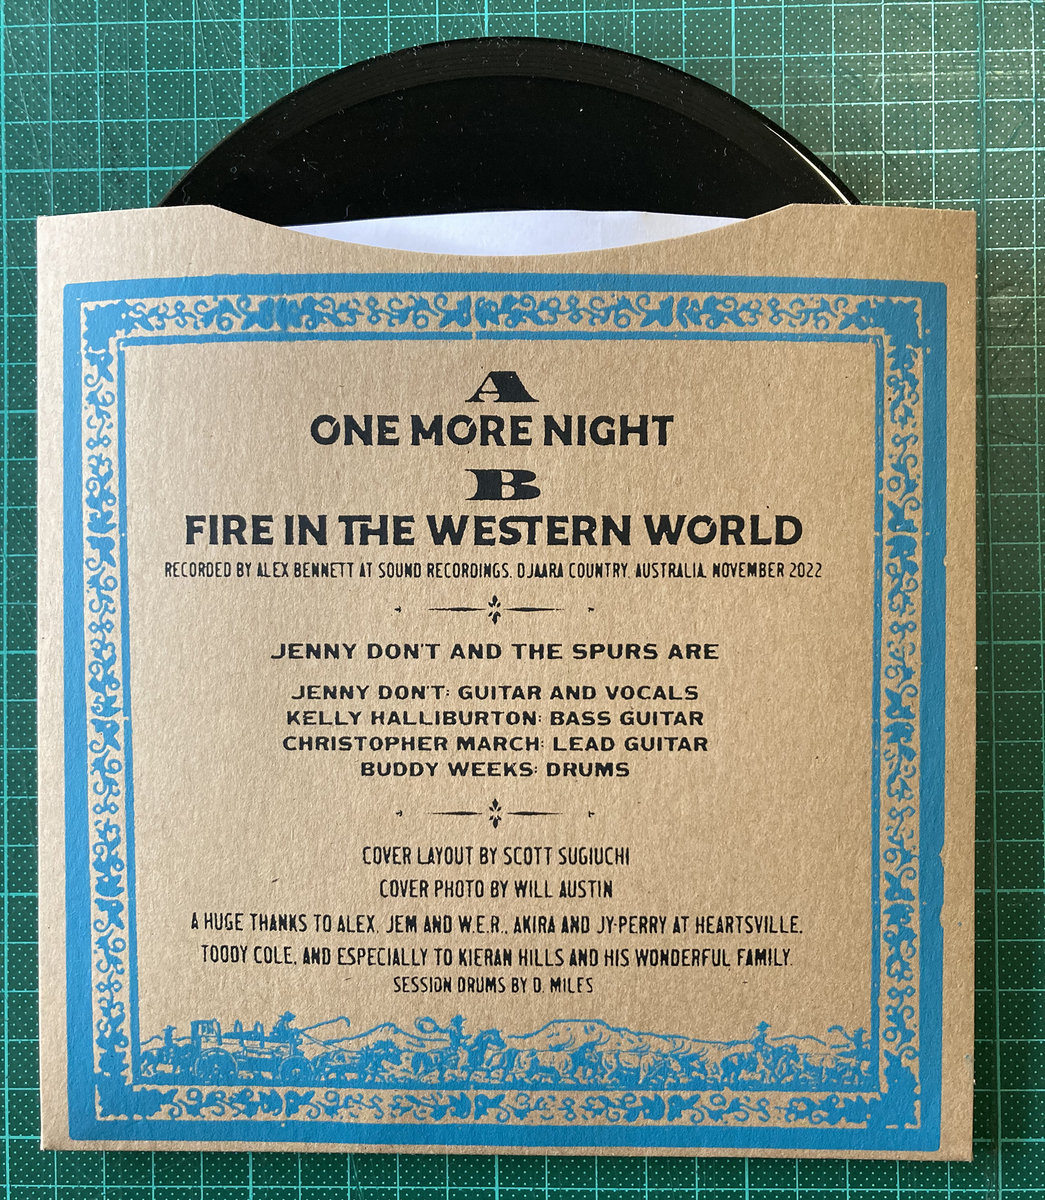 A
ONE MORE NIGHT
B
FIRE IN THE WESTERN WORLD
RECORDED BY ALEX BENNETT AT SOUND RECORDINGS, DJAARA COUNTRY, AUSTRALIA, NOVEMBER 2022
JENNY DON'T AND THE SPURS ARE
JENNY DON'T: GUITAR AND VOCALS
KELLY HALLIBURTON: BASS GUITAR
CHRISTOPHER MARCH: LEAD GUITAR
BUDDY WEEKS: DRUMS
COVER LAYOUT BY SCOTT SUGIUCHI
COVER PHOTO BY WILL AUSTIN
A HUGE THANKS TO ALEX, JEM AND W.E.R., AKIRA AND JY-PERRY AT HEARTSVILLE,
TOODY COLE, AND ESPECIALLY TO KIERAN HILLS AND HIS WONDERFUL FAMILY.
SESSION DRUMS BY D. MILES